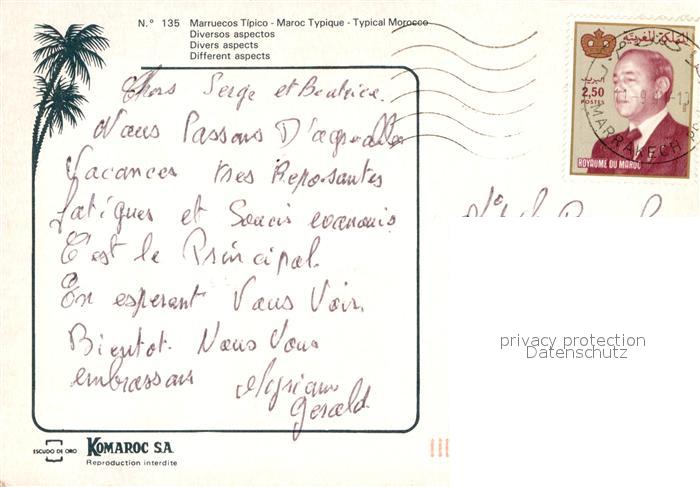 N.º 135 Marruecos Típico - Maroc Typique - Typical Morocco
Diversos aspectos
Divers aspects
Different aspects
Chers Serge et Beatrice.
Nous Passons D'agreables
Vacances tres Reposantes
fatigues et Soucis evanouis
C'est le Principal.
En esperant Vous Voir
Bientot. Nous Vous
embrassons Myriam
Gerald
المملكة المغربية
البريد
2,50
POSTES
ROYAUME DU MAROC
MARRAKECH
privacy protection
Datenschutz
ESCUDO DE ORO
KOMAROC S.A.
Reproduction interdite